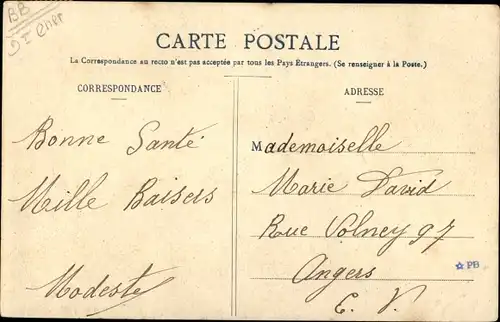 BB
CARTE POSTALE
La Correspondance au recto n'est pas acceptée par tous les Pays Étrangers. (Se renseigner à la Poste.)
CORRESPONDANCE
ADRESSE
Bonne Santé
Mille Baisers
Modeste
Mademoiselle
Marie David
Rue Volney 97
Angers
E. V.
☆ PB